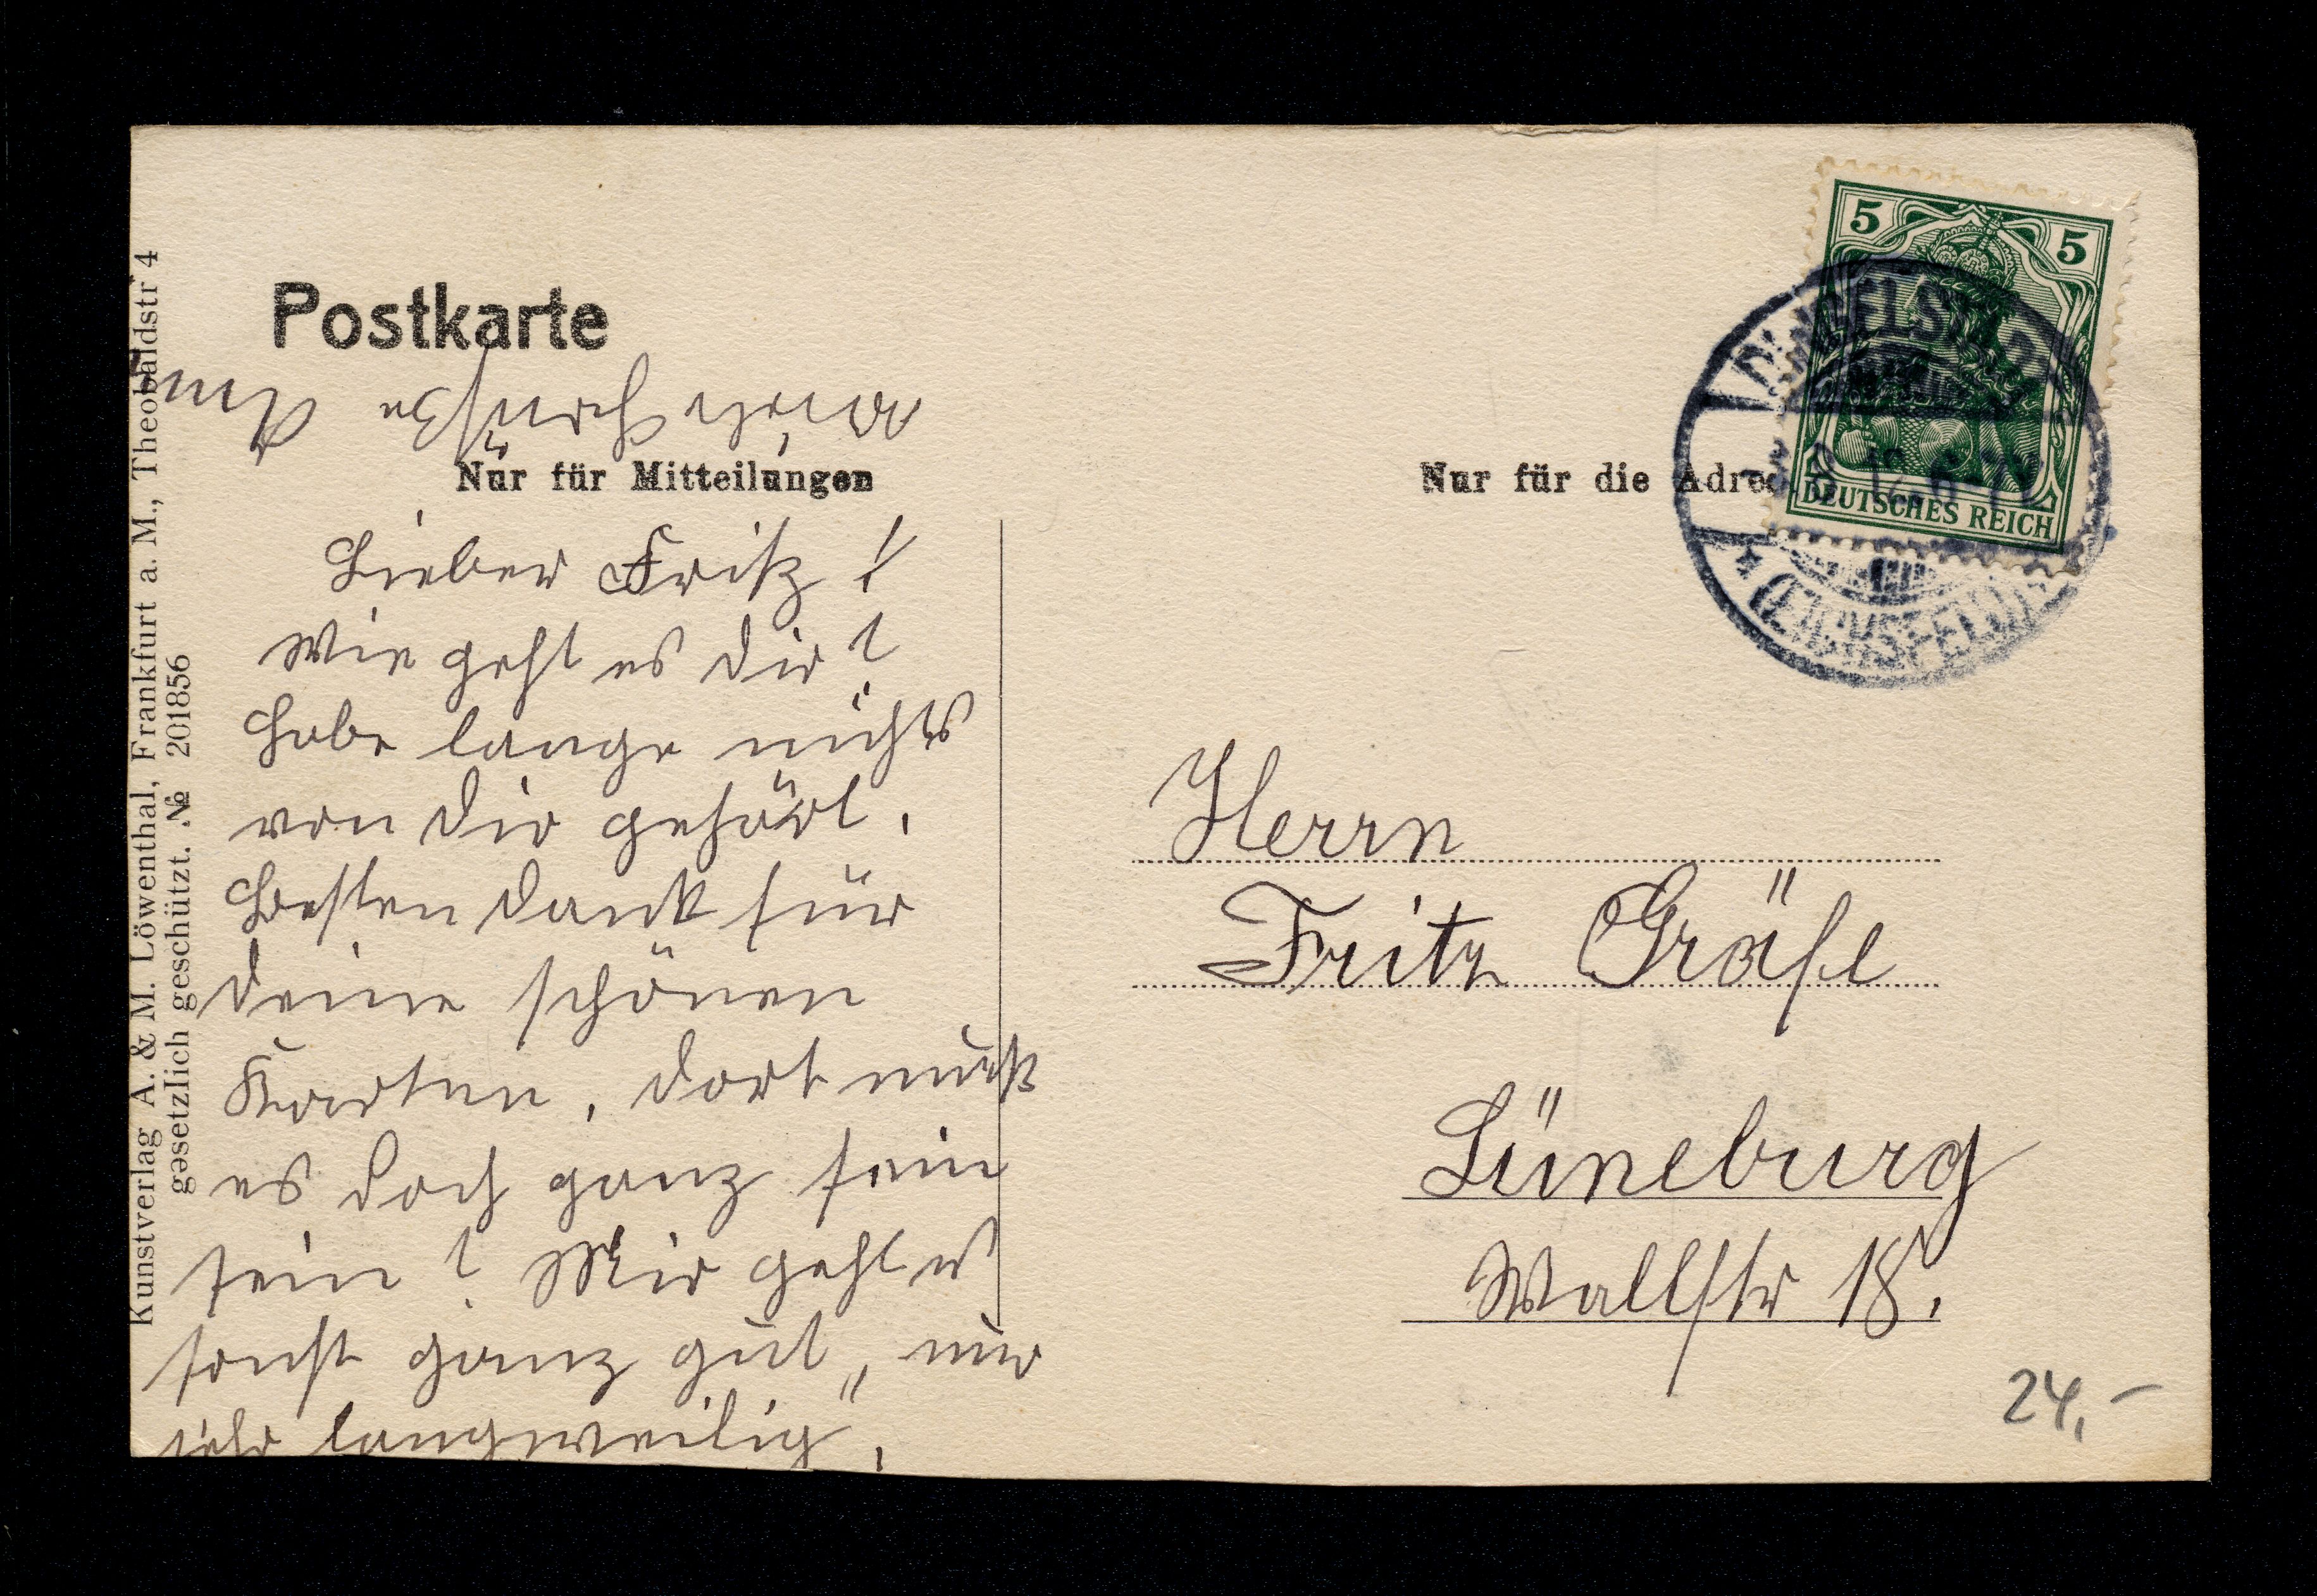 Postkarte
Nur für Mitteilungen
Lieber Fritz!
Wie geht es dir?
Habe lange nichts
von dir gehört.
Besten Dank für
deine schönen
Karten, dort muß
es doch ganz fein
sein? Mir geht es
sonst ganz gut, nur
"sehr langweilig".
Kunstverlag A. & M. Löwenthal, Frankfurt a. M., Theobaldstr 4
gesetzlich geschützt. № 201856
5 5
DEUTSCHES REICH
DINGELSTÄDT
(EICHSFELD)
Nur für die
Herrn
Fritz Gräfe
Lüneburg
Wallstr 18.
24,-